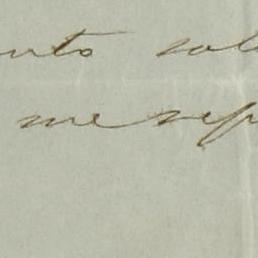 nto sol
me sep